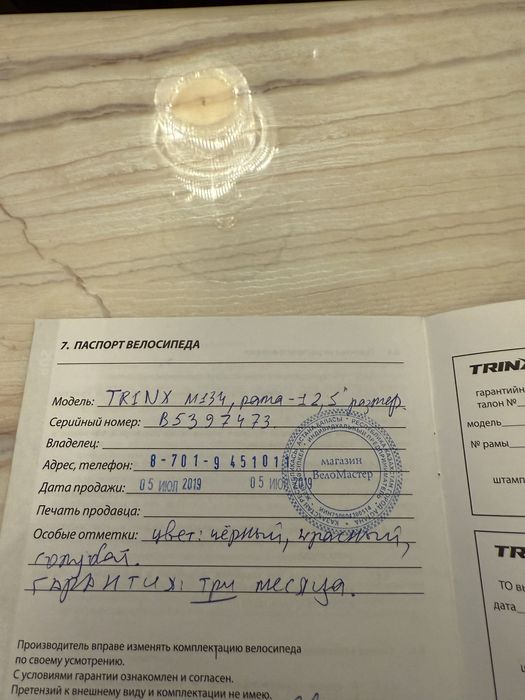 7. ПАСПОРТ ВЕЛОСИПЕДА
Модель: TRINX M134, рама - 12,5" размер.
Серийный номер: B5397473
Владелец:
Адрес, телефон: 8-701-9 45101
Дата продажи: 05 ИЮЛ 2019 05 ИЮЛ 2019
Печать продавца:
магазин
ВелоМастер
Особые отметки: цвет: чёрный, красный,
голубой.
Гарантия: три месяца.
Производитель вправе изменять комплектацию велосипеда
по своему усмотрению.
С условиями гарантии ознакомлен и согласен.
Претензий к внешнему виду и комплектации не имею.
TRINX
гарантийн
талон №
модель
№ рамы
штамп
TR
ТО вы
дата